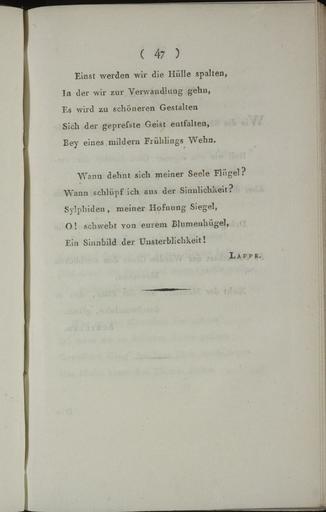 ( 47 )
Einst werden wir die Hülle spalten,
In der wir zur Verwandlung gehn,
Es wird zu schöneren Gestalten
Sich der gepreſste Geist entfalten,
Bey eines mildern Frühlings Wehn.
Wann dehnt sich meiner Seele Flügel?
Wann schlüpf ich aus der Sinnlichkeit?
Sylphiden, meiner Hofnung Siegel,
O! schwebt von eurem Blumenhügel,
Ein Sinnbild der Unsterblichkeit!
LAPPE.